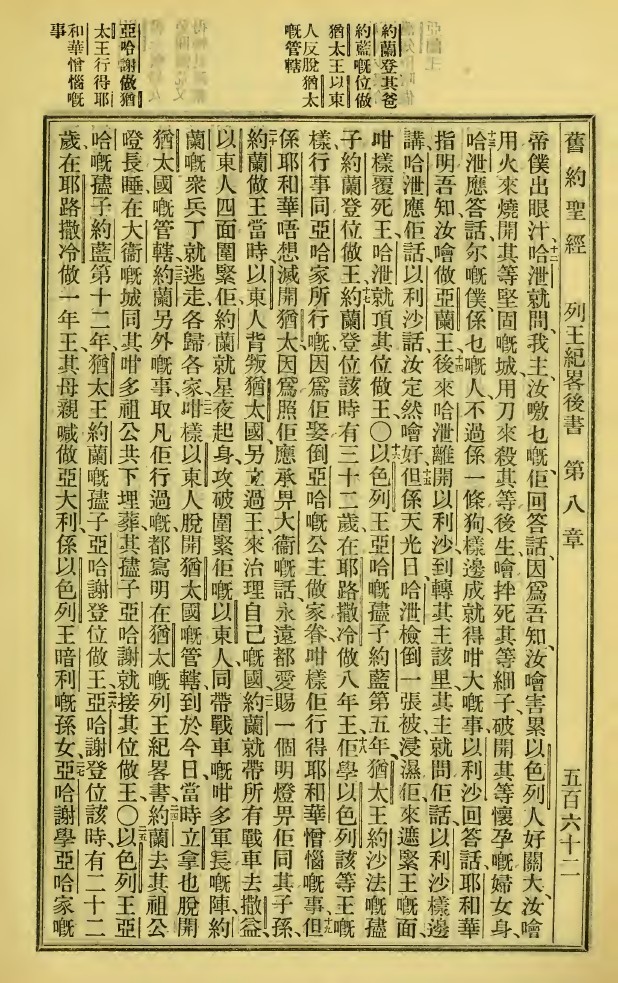 舊約聖經　列王紀畧後書　第八章　五百六十二
約蘭登其爸
約藍嘅位做
猶太王以東
人反脫猶太
嘅管轄
亞哈謝做猶
太王行得耶
和華憎惱嘅
事
帝僕出眼汁、十二哈泄就問、我主、汝噭乜嘅、佢回答話、因爲吾知、汝噲害累以色列人好關大、汝噲
用火來燒開其等堅固嘅城、用刀來殺其等後生、噲拌死其等細子、破開其等懷孕嘅婦女身、
十三哈泄應答話、尔嘅僕係乜嘅人、不過係一條狗樣、邊成就得咁大嘅事、以利沙回答話、耶和華
指明吾知、汝噲做亞蘭王、十四後來哈泄離開以利沙、到轉其主該里、其主就問佢話、以利沙樣邊
講、哈泄應佢話、以利沙話、汝定然噲好、十五但係天光日、哈泄檢倒一張被、浸濕佢來遮緊王嘅面、
咁樣覆死王、哈泄就頂其位做王〇十六以色列王亞哈嘅孻子約藍第五年、猶太王約沙法嘅孻
子約蘭登位做王、十七約蘭登位該時有三十二歲、在耶路撒冷做八年王、十八佢學以色列該等王嘅
樣行事、同亞哈家所行嘅、因爲佢娶倒亞哈嘅公主做家眷、咁樣佢行得耶和華憎惱嘅事、十九但
係耶和華唔想滅開猶太、因爲照佢應承畀大衞嘅話、永遠都愛賜一個明燈畀佢同其子孫、
二十約蘭做王當時、以東人背叛猶太國、另立過王來治理自己嘅國、二一約蘭就帶所有戰車去撒益、
以東人四面圍緊佢、約蘭就星夜起身、攻破圍緊佢嘅以東人、同帶戰車嘅咁多軍長嘅陣、約
蘭嘅衆兵丁就逃走、各歸各家、二二咁樣以東人脫開猶太國嘅管轄、到於今日、當時立拿也脫開
猶太國嘅管轄、二三約蘭另外嘅事、取凡佢行過嘅、都寫明在猶太嘅列王紀畧書、二四約蘭去其祖公
噔長睡、在大衞嘅城、同其咁多祖公共下埋葬、其孻子亞哈謝就接其位做王〇二五以色列王亞
哈嘅孻子約藍第十二年、猶太王約蘭嘅孻子亞哈謝登位做王、二六亞哈謝登位該時、有二十二
歲、在耶路撒冷做一年王、其母親喊做亞大利、係以色列王暗利嘅孫女、二七亞哈謝學亞哈家嘅